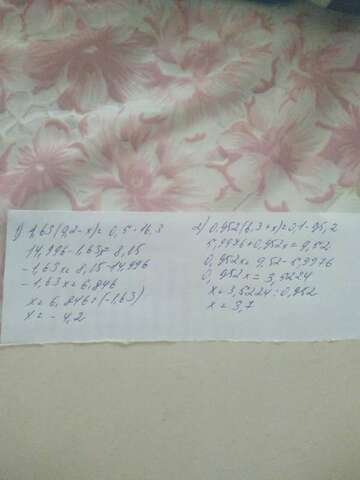 1) 1,63(9,2-x)= 0,5·16,3
14,996-1,63x= 8,15
-1,63x= 8,15-14,996
-1,63x=6,846
x= 6,846:(-1,63)
x= -4,2
2) 0,952(6,3+x)=0,1·95,2
5,9976+0,952x=9,52
0,952x= 9,52-5,9976
0,952x= 3,5224
x=3,5224:0,952
x= 3,7